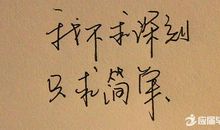 我不求深刻
只求简单、
应届毕